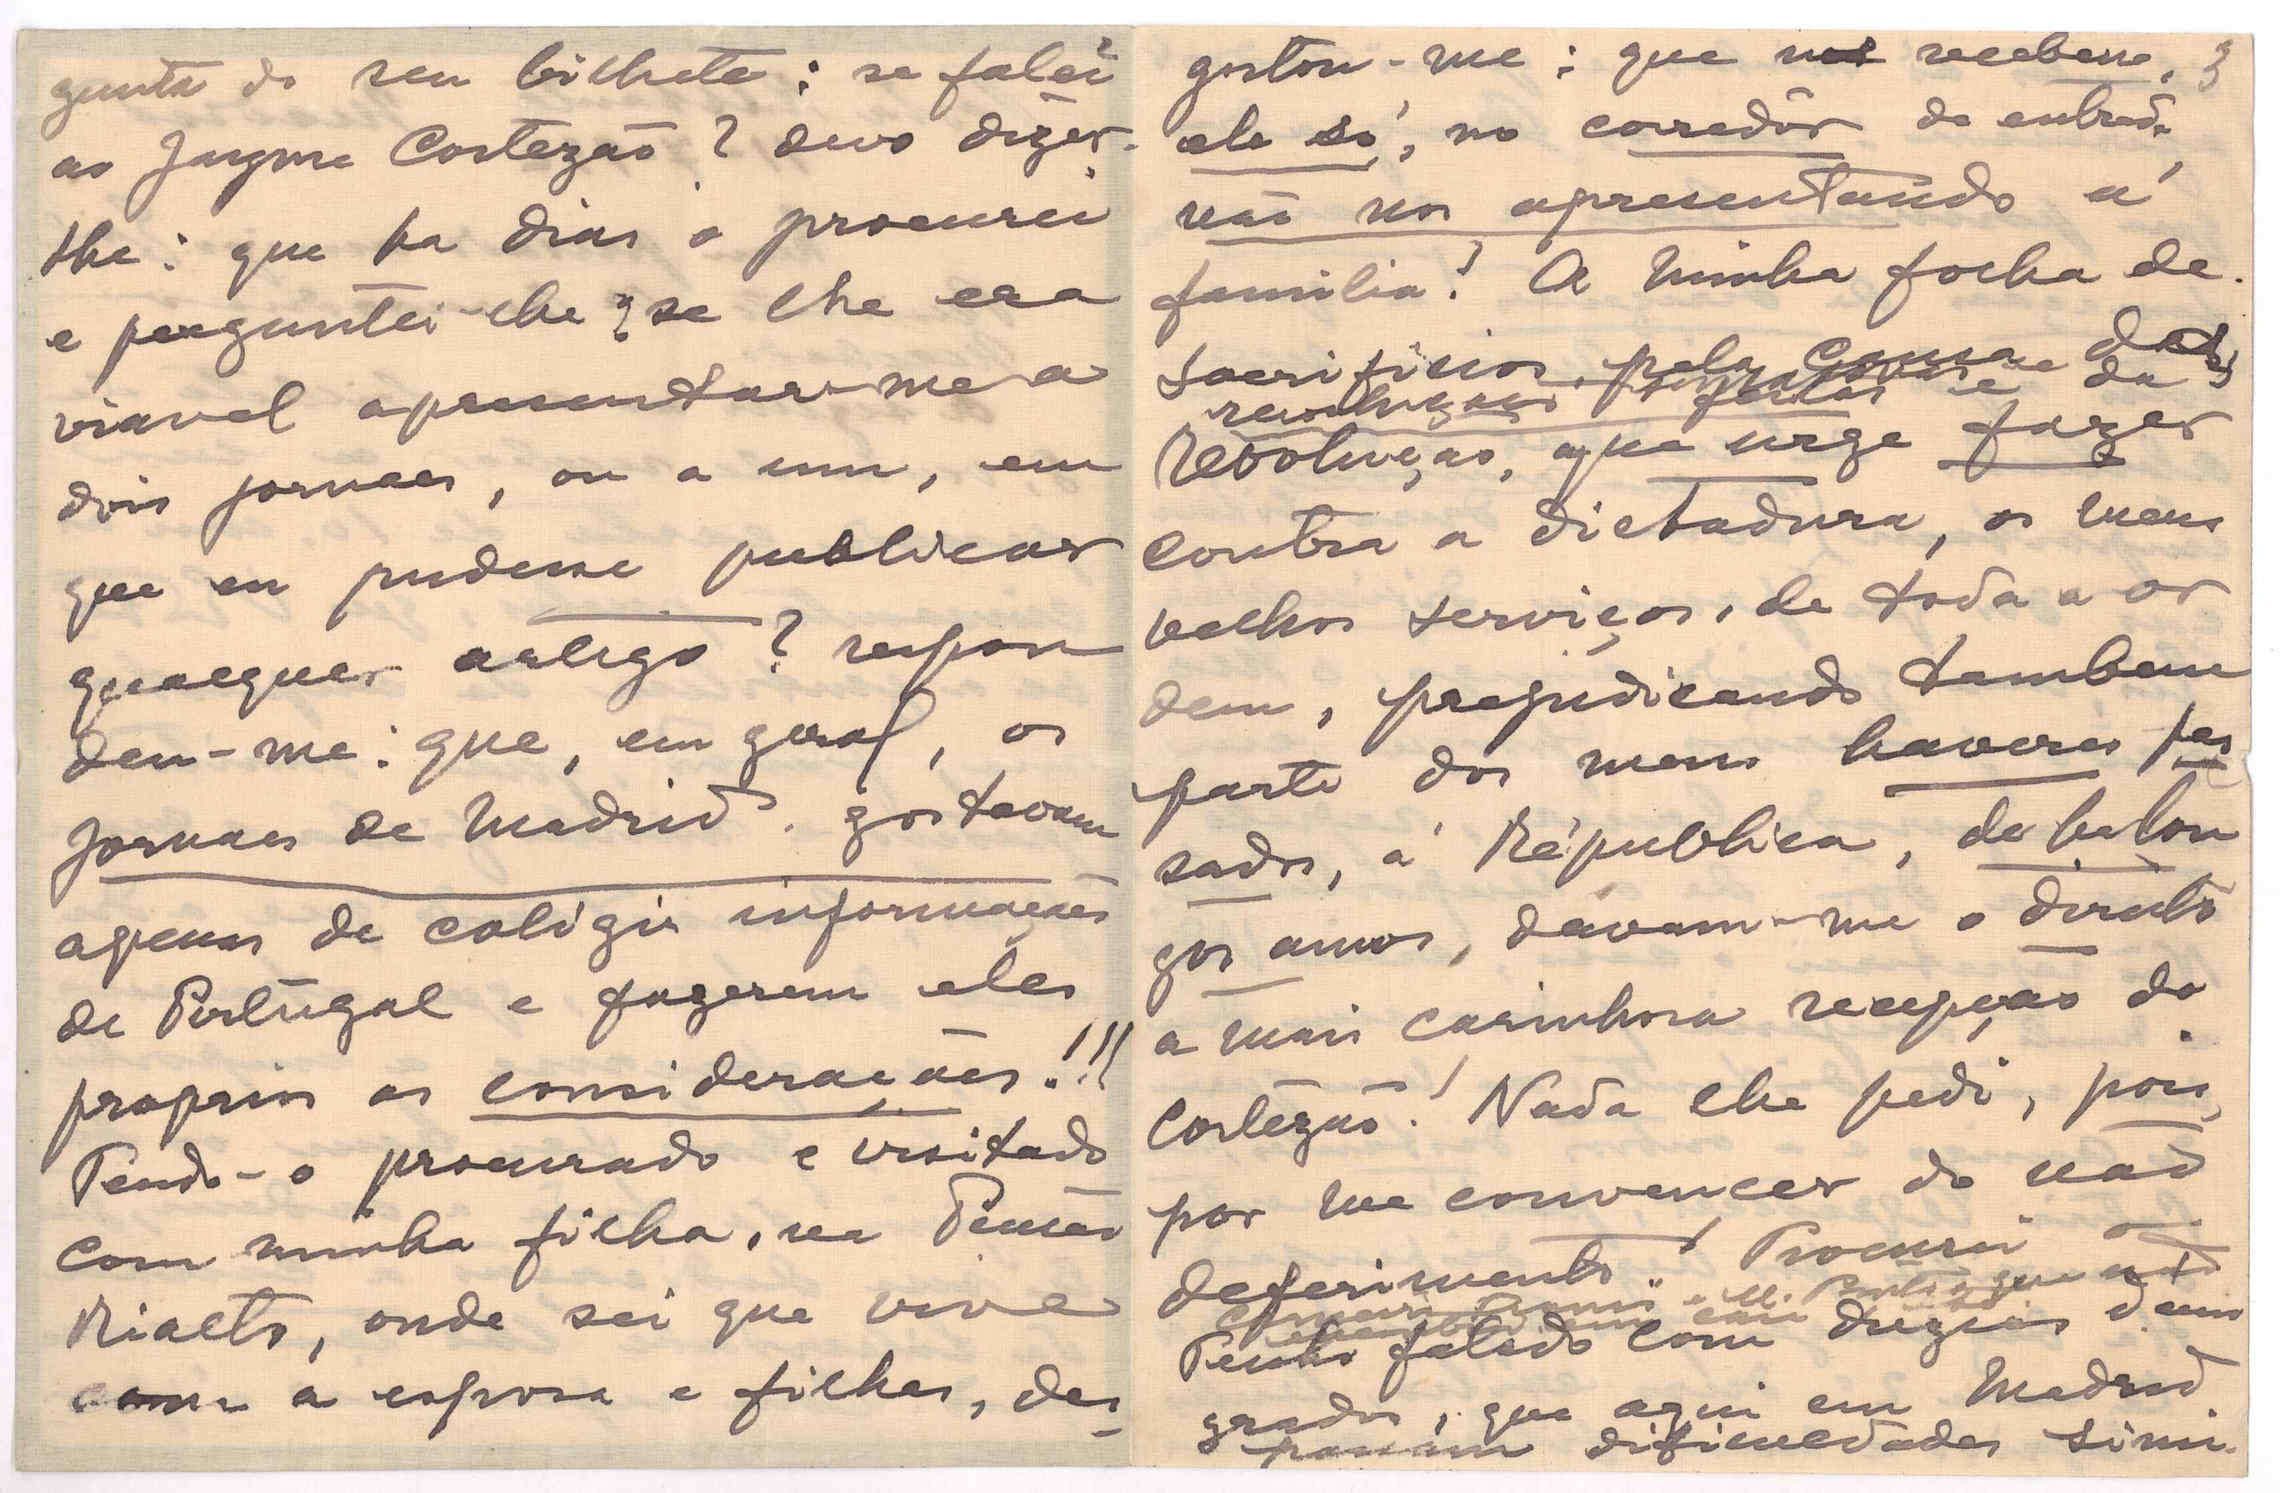 gunta do seu bilhete: se falei
ao Jayme Cortezão? devo dizer-
lhe: que ha dias o procurei
e perguntei-lhe se lhe era
viavel apresentar-me a
dois jornaes, ou a um, em
que eu pudesse publicar
qualquer artigo? respon
deu-me: que, em geral, os
jornaes de Madrid, gostavam
apenas de coligir informações
de Portugal e fazerem eles
proprios as considerações!!!
Tendo-o procurado e visitado
com minha filha, na Pensão
Rialto, onde sei que vive
com a esposa e filhas, des-
gostou-me: que nos recebesse,
3
ele só, no corredôr de entrada,
não nos apresentando á
familia! A minha folha de
sacrificios, pela causa das
revoluções feitas e da
Revolução, que urge fazer
contra a dictadura, os meus
velhos serviços, de toda a or
dem, prejudicando tambem
parte dos meus haveres pas
sados, á Républica, de ha lon
gos anos, davam-me o direito
a mais carinhosa recepção do
Cortezão! Nada lhe pedi, pois,
por me convencer do não
deferimento! Procurei o
que não
Tenho falado com duzias d'emi
grados, que aqui em Madrid
passam dificuldades simi-